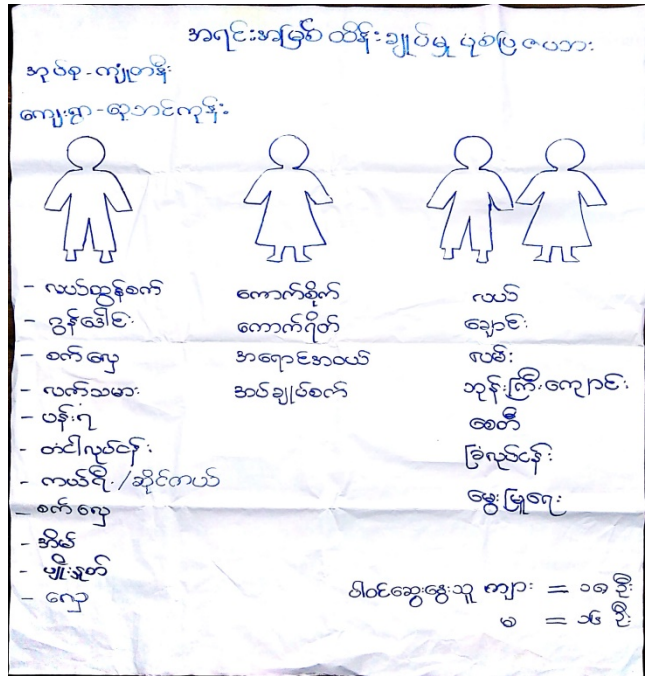 အရင်းအမြစ် ထိန်းချုပ်မှု ပုံစံပြ ဇယား
အုပ်စု - ကျုံတနီး
ကျေးရွာ - ဆူဘင်ကုန်း
- လယ်ထွန်စက်
- ဒွန်ဒေါင်း
- စက်လှေ
- လက်သမား
- ပန်းရံ
- တံငါလုပ်ငန်း
- ကယ်ရီ / ဆိုင်ကယ်
- စက်လှေ
- အိမ်
- ပျိုးနှုတ်
- လှေ
ကောက်စိုက်
ကောက်ရိတ်
အရောင်းအဝယ်
အပ်ချုပ်စက်
လယ်
ချောင်း
လမ်း
ဘုန်းကြီးကျောင်း
စေတီ
ခြံလုပ်ငန်း
မွေးမြူရေး
ပါဝင်ဆွေးနွေးသူ ကျား = ၁၈ ဦး
မ = ၁၆ ဦး